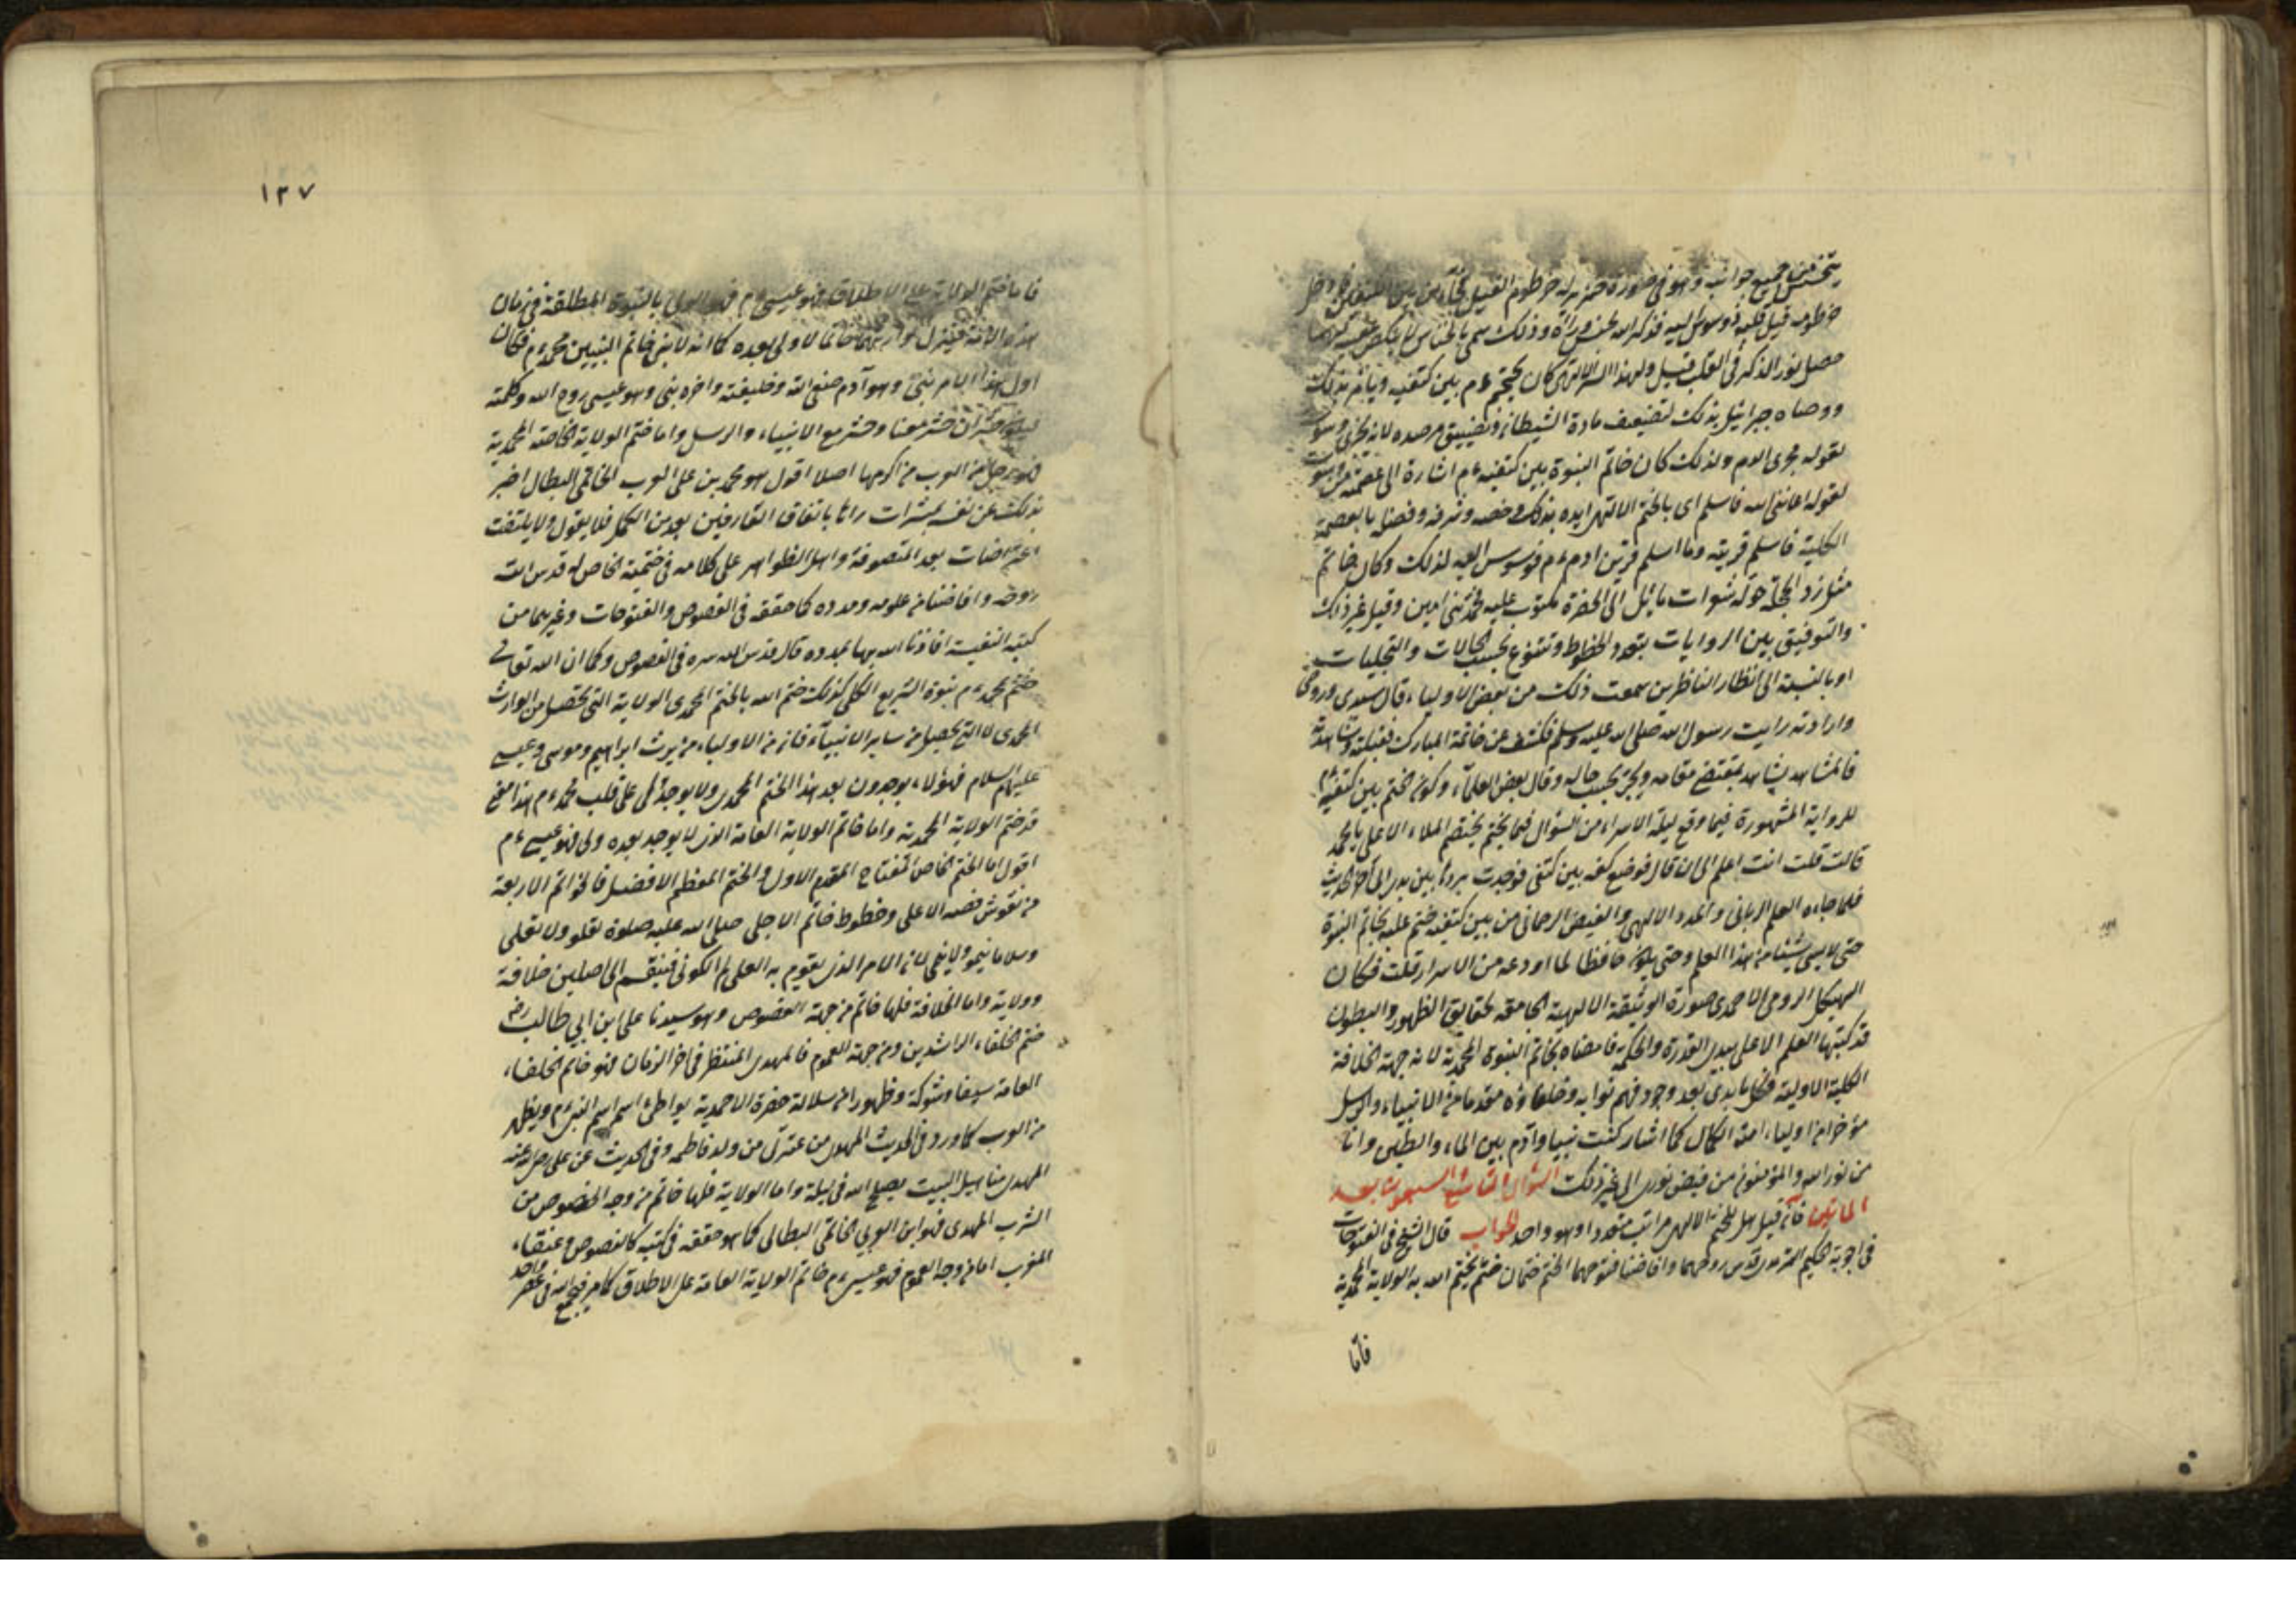 حصل نور الذكر في القلب قيل ولهذا السر الالهي كان يحتجم ءم بين كتفيه ويأمر بذلك
ووصاه جبرائيل بذلك لتضعيف مادة الشيطان وتضييق مرصده لانه يجري وسوسته
لقوله مجرى الدم ولذلك كان خاتم النبوة بين كتفيه ءم اشارة الى عصمته من وسوسته
لقوله اعانني الله فاسلم اى بالختم الالهى ايده بذلك وخصه وشرفه وفضله بالعصمة
الكلية فاسلم قرينه وما اسلم قرين ادم ءم فوسوس اليه لذلك وكان خاتم
مثل زر الحجلة حوله شعرات مائل الى الخضرة مكتوب عليه محمد نبي امين وقيل غير ذلك
والتوفيق بين الروايات بتعدد الخطوط وتنوع بحسب الحالات والتجليات
او بالنسبة الى انظار الناظرين سمعت ذلك من بعض الاولياء قال سيدى وروحى
واراد ته رايت رسول الله صلى الله عليه وسلم فكشف عن خاتمه المبارك فقبلته وشاهدته
فالمشاهد يشاهد بمقتضى مقامه بحسب حاله وقال بعض العلماء وكون الختم بين كتفيه
للرواية المشهورة فيما وقع ليلة الاسراء من السؤال فيما يختصم الملاء الاعلى يا محمد
قالت قلت انت اعلم الى ان قال فوضع كفه بين كتفى فوجدت بردها بين يدى الى اخر الحديث
فلما جاءه العلم الربانى والمدد الالهى والفيض الرحمانى من بين كتفيه ختم عليه بخاتم النبوة
حتى لا ينسى شيئا من هذا العلم وحتى يكون حافظا لما اودعه من الاسرار قلت فكان
الهيكل الروحى الاحمدى صورة الوثيقة الالهية الجامعة لحقايق الظهور والبطون
قد كتبها القلم الاعلى بيدى القدرة والحكمة فامضاه بخاتم النبوة المحمدية لانه جهة الخلافة
الكلية الاولية فكل ما بدى بعد وجود فهم نوابه وخلفاؤه مقدما من الانبياء والرسل
مؤخرا من اولياء امته الكمال كما اشار كنت نبيا وآدم بين الماء والطين وانا
من نور الله والمؤمنون من فيض نورى الى غير ذلك السؤال التاسع السبعون بعد
الماتين فان قيل هل للختم الالهى مراتب متعددا وهو واحد الجواب قال الشيخ فى الفتوحات
فى اجوبة الحكيم الترمذى قدس روحهما وافاضنا فتوحهما الختم ختمان ختم يختم الله به الولاية المحمدية
فاما
١٣٧
فاما ختم الولاية على الاطلاق فهو عيسى ءم فهو الولى بالنبوة المطلقة فى زمان
هذه الامة فينزل وارثا خاتما لا ولى بعده كما انه لا نبى خاتم النبيين محمد ءم فكان
اول هذا الامر نبى وهو آدم صفى الله وخليفته واخره نبى وهو عيسى روح الله وكلمته
فيكون له حشران حشر معنا وحشر مع الانبياء والرسل واما ختم الولاية الخاصة المحمدية
فهو رجل من العرب من اكرمها اصلا اقول هو محمد بن على العرب الحاتمى البطال اخبر
بذلك عن نفسه بمبشرات رآها باتفاق العارفين بعد من الكمل فلا يعول ولا يلتفت
اعتراضات بعد المتصوفة واهل الظواهر على كلامه فى ختمية الخاص له قدس الله
روحه وافاضنا من علومه ومدده كما حققه فى الفصوص والفتوحات وغيرهما من
كتبه النفيسة افادنا الله بها بمدده قال قدس الله سره فى الفصوص وكما ان الله تعالى
ختم بمحمد ءم نبوة التشريع الكلى كذلك ختم الله بالختم المحمدى الولاية التى تحصل من الوارث
المحمدى لا التى تحصل من سائر الانبيآء فان من الاولياء من يرث ابراهيم وموسى وعيسى
عليهم السلام فهؤلاء يوجدون بعد هذا الختم المحمدى ولا يوجد ولى على قلب محمد ءم هذا معنى
قد ختم الولاية المحمدية واما خاتم الولاية العامة الذى لا يوجد بعده ولى فهو عيسى ءم
اقول اما الختم الخاص المفتاح المقدم الاول والختم المعظم الافضل فالخواتم الاربعة
من نقوش فصه الاعلى وخطوط خاتم الاجلى صلى الله عليه صلوة تعلو ولا تعلى
وسلاما ينمو ولا يفنى لان الامر الذى يقوم به العلمى الكونى فينقسم الى اصلين خلافة
وولاية واما الخلافة فلها خاتم من جهة الخصوص وهو سيدنا على ابن ابى طالب رضى
ختم الخلفاء الراشدين ومن جهة العموم فالمهدى المنتظر فى اخر الزمان فهو خاتم الخلفاء
العامة سيفا وشوكة وظهورا من سلالة حضرة الاحمدية يواطئ اسمه اسم النبى ءم ويظهر
من العرب كما ورد فى الحديث المهدى من عترتى من ولد فاطمه وفى الحديث عن على رضى الله عنه
المهدى منا اهل البيت يصلح الله فى ليلة واما الولاية فلها خاتم من وجه الخصوص من
الشرب المهدى فهو ابن العربى الحاتمى البطالى كما هو حققه فى كتبه كالفصوص وعنقاء
المغرب اما من وجه العموم فهو عيسى ءم خاتم الولاية العامة على الاطلاق كما مر فيجمع الله فى عصر واحد